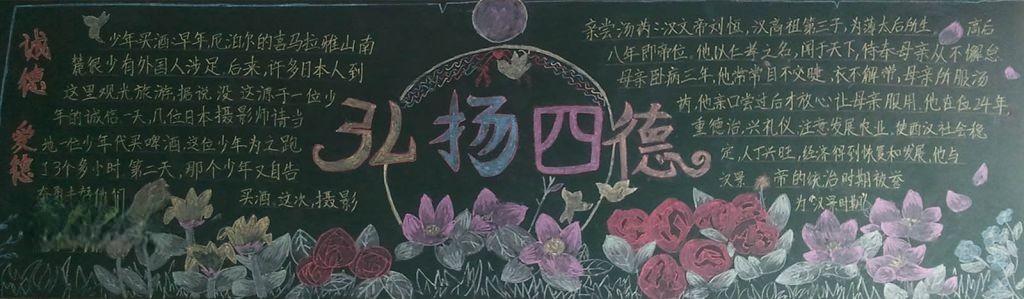 诚德
爱德
少年买酒:早年,尼泊尔的喜马拉雅山南
麓很少有外国人涉足,后来,许多日本人到
这里观光旅游,据说,没这源于一位少
年的诚信.一天,几位日本摄影师请当
地一位少年代买啤酒,这位少年为之跑
了3个多小时.第二天,那个少年又自告
买酒.这次,摄影
弘扬四德
亲尝汤药:汉文帝刘恒,汉高祖第三子,为薄太后所生,高后
八年即帝位.他以仁孝之名,闻于天下,侍奉母亲从不懈怠
母亲卧病三年,他常常目不交睫,衣不解带,母亲所服汤
药,他亲口尝过后才放心让母亲服用,他在位24年
重德治,兴礼仪,注意发展农业,使西汉社会稳
定,人丁兴旺,经济得到恢复和发展,他与
汉景帝的统治时期被誉
为"